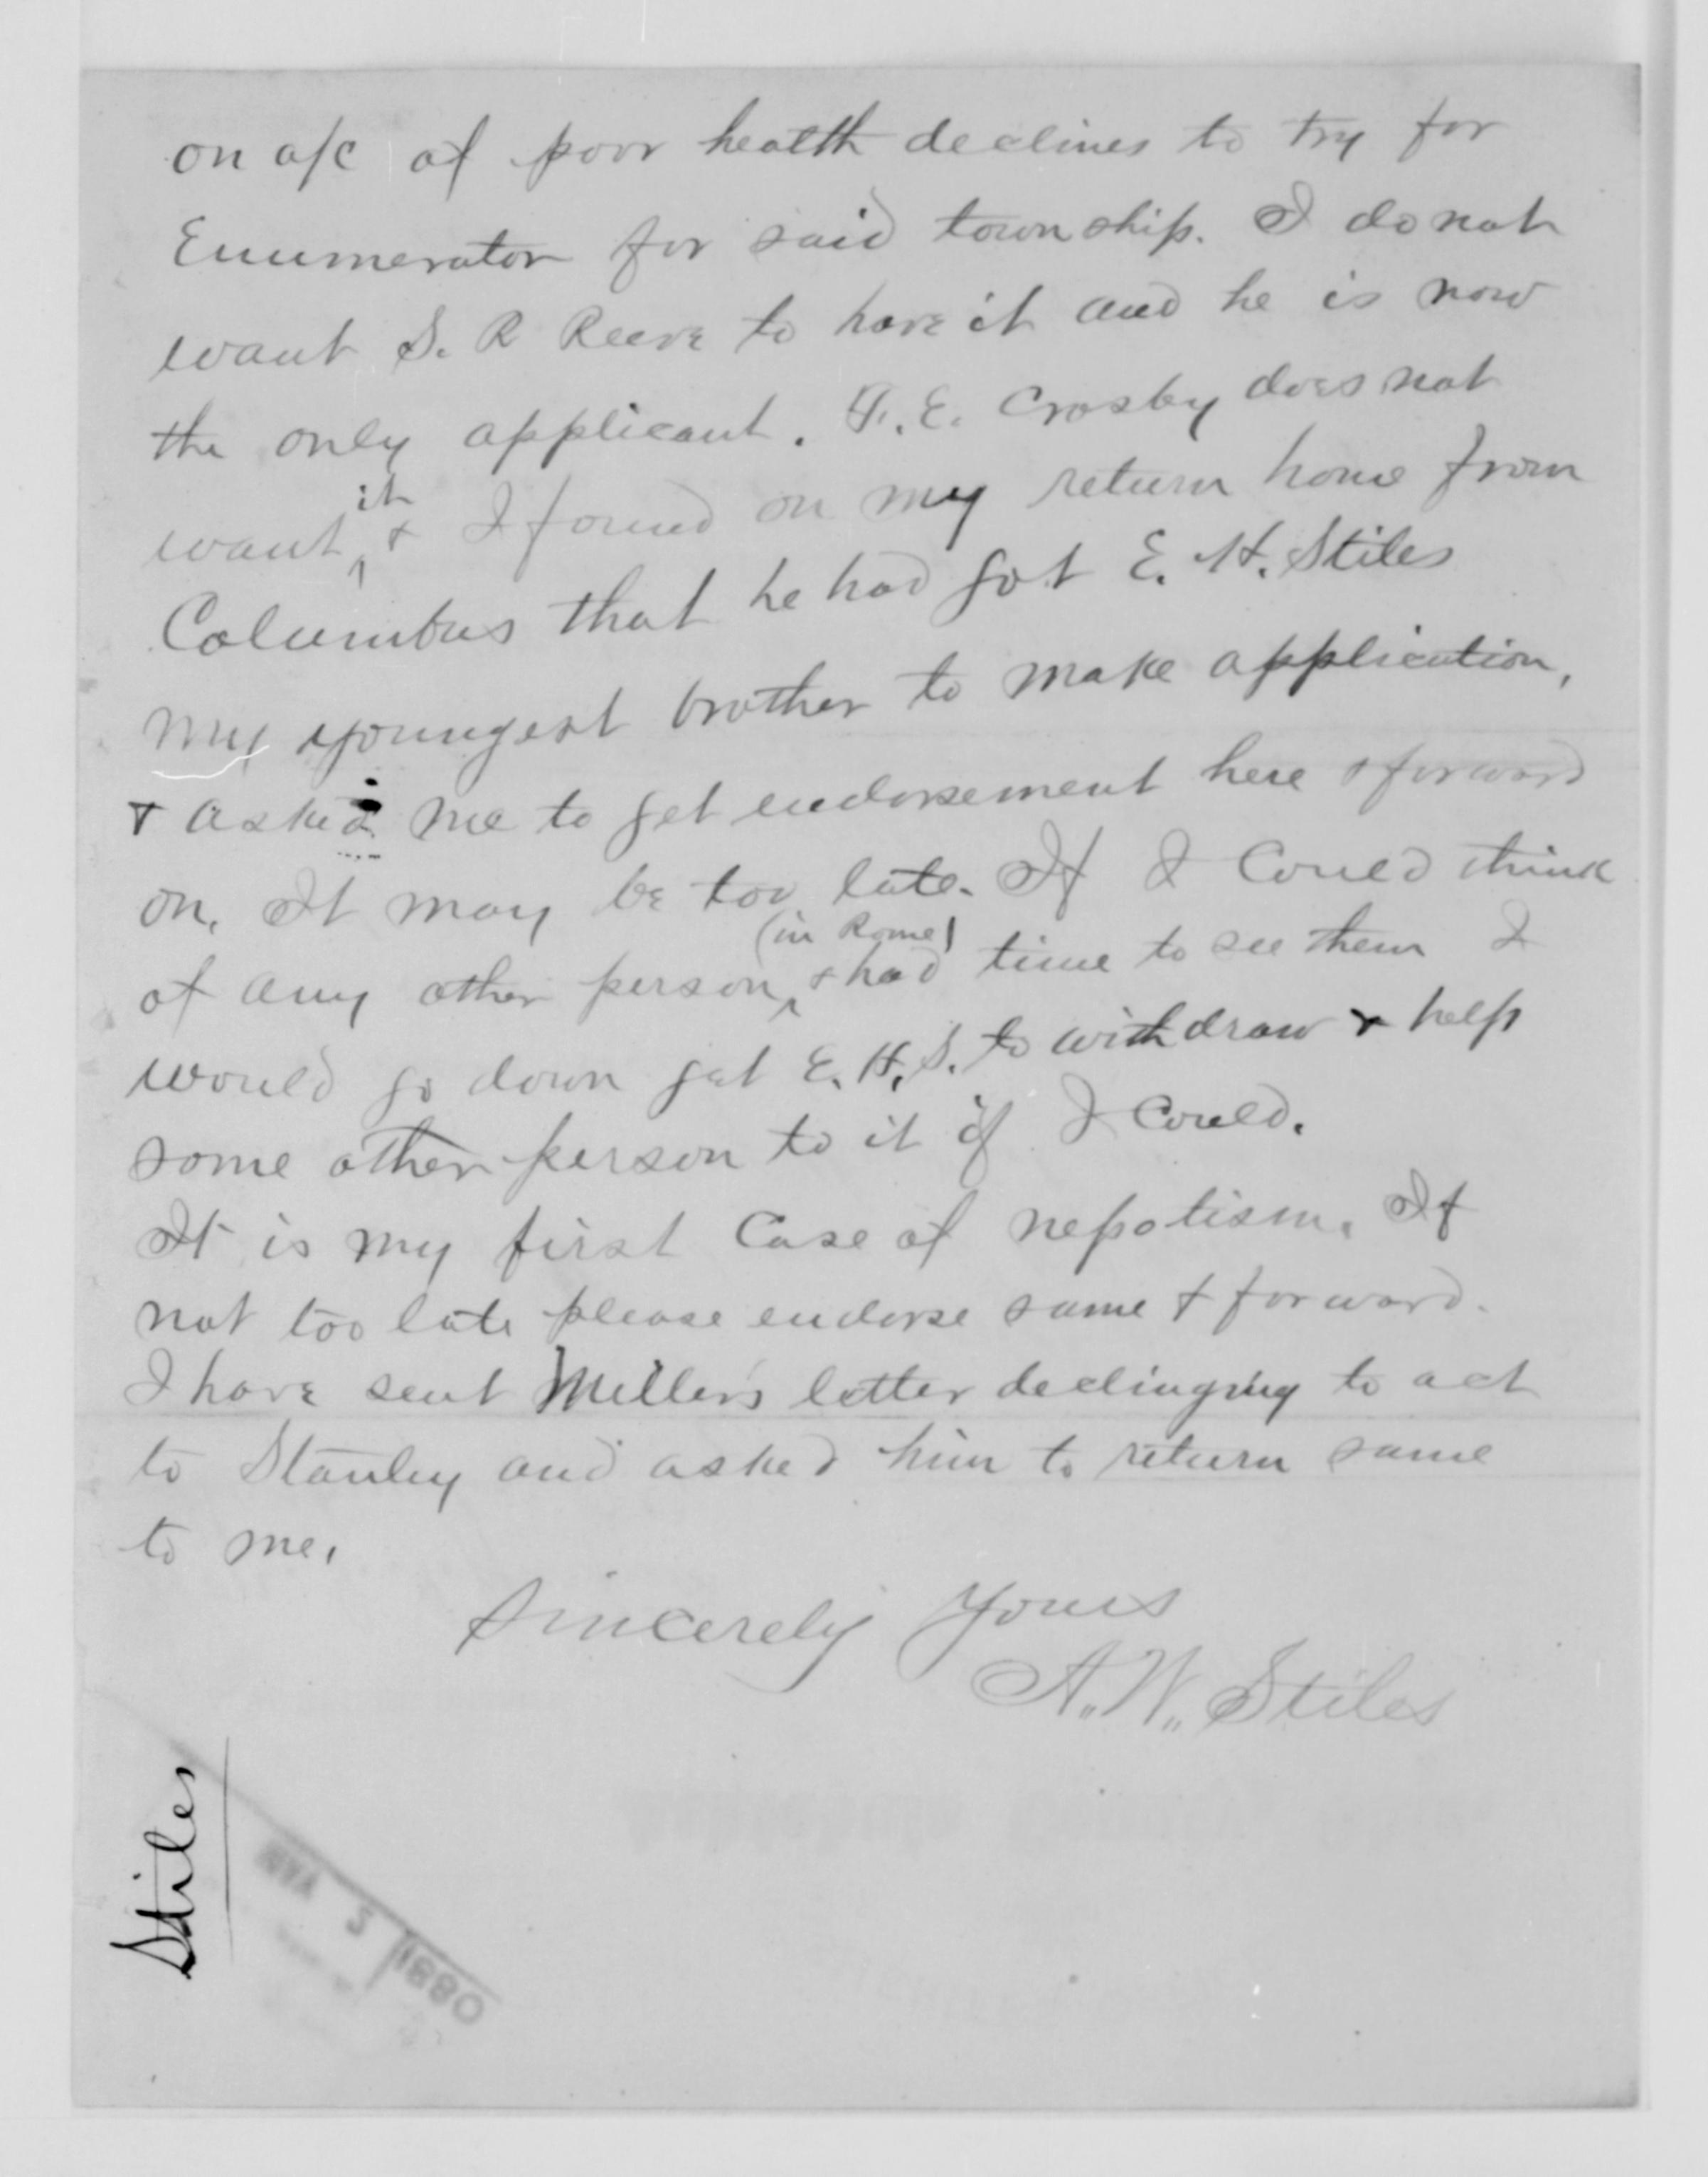 on a/c of poor health declines to try for
Enumerator for said township. I do not
want S. R Reeve to have it and he is now
the only applicant. F. E. Crosby does not
want it & I found on my return home from
Columbus that he had got E. H. Stiles
my youngest brother to make application,
& asked me to get endorsement here & forward
on. It may be too late. If I could think
of any other person (in Rome) & had time to see them I
would go down get E. H. S. to withdraw & help
some other person to it if I could.
It is my first case of nepotism. If
not too late please endorse same & forward.
I have sent Millers letter declinging to act
to Stanley and asked him to return same
to me.
Sincerely Yours
A. W. Stiles
Stiles
3 1880